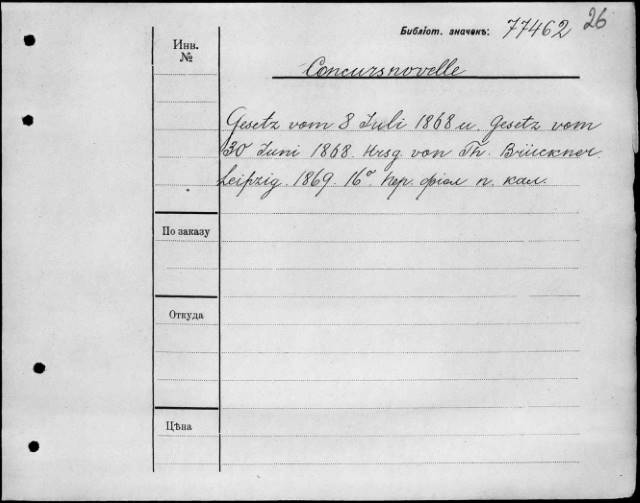 26
Библіот. значекъ: 77462
Инв. №
Concursnovelle
Gesetz vom 8 Juli 1868 u. Gesetz vom
30 Juni 1868. Hrsg. von Th. Brückner.
Leipzig. 1869. 16°. пер. фіол п. кал.
По заказу
Откуда
Цѣна